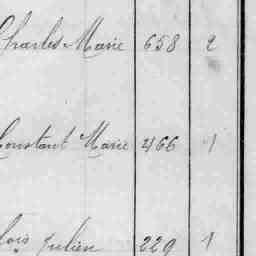 Charles Marie 658 2
Constant Marie 466 1
Julien 229 1